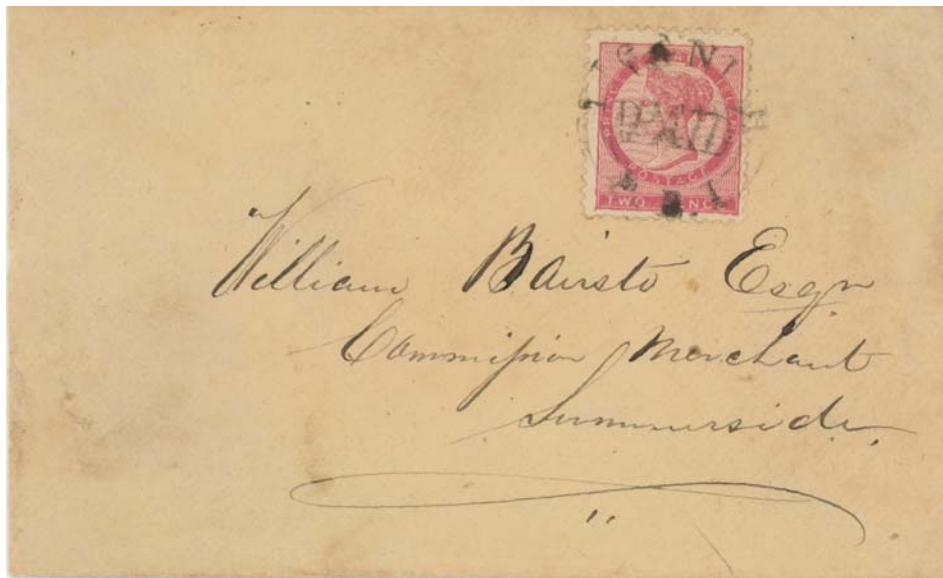 PAID
POSTAGE
TWO PENCE
William Bairsto Esqr
Commission Merchant
Summerside.